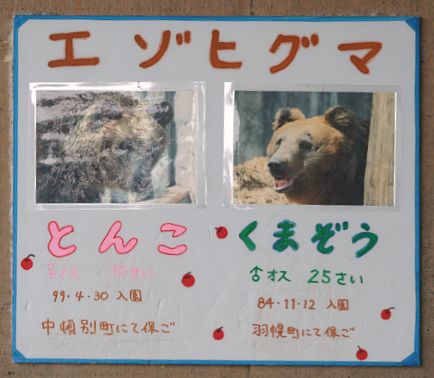 エゾヒグマ
とんこ
くまぞう
♀メス さい
♂オス 25さい
99・4・30 入園
84・11・12 入園
中頓別町にて保ご
羽幌町にて保ご